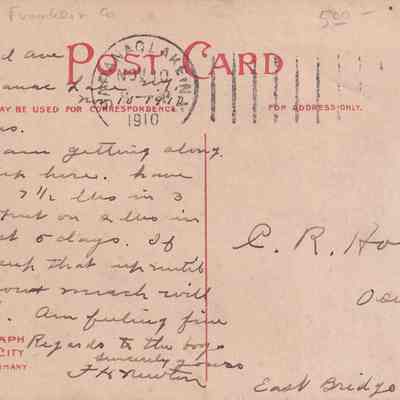 Franklin Co
5.00 -
d Ave
POST CARD
SARANAC LAKE N.Y.
NOV 10
1910
Lake
Nov 10 - 1910
MAY BE USED FOR CORRESPONDENCE
FOR ADDRESS ONLY.
am getting along
up here. have
7 1/2 lbs in 3
put on 2 lbs in
6 days. If
keep that up until
much will
Am feeling fine
Regards to the boys
sincerely yours
F H Newton
C. R. Ho
East Bridge
APH
CITY
RMANY